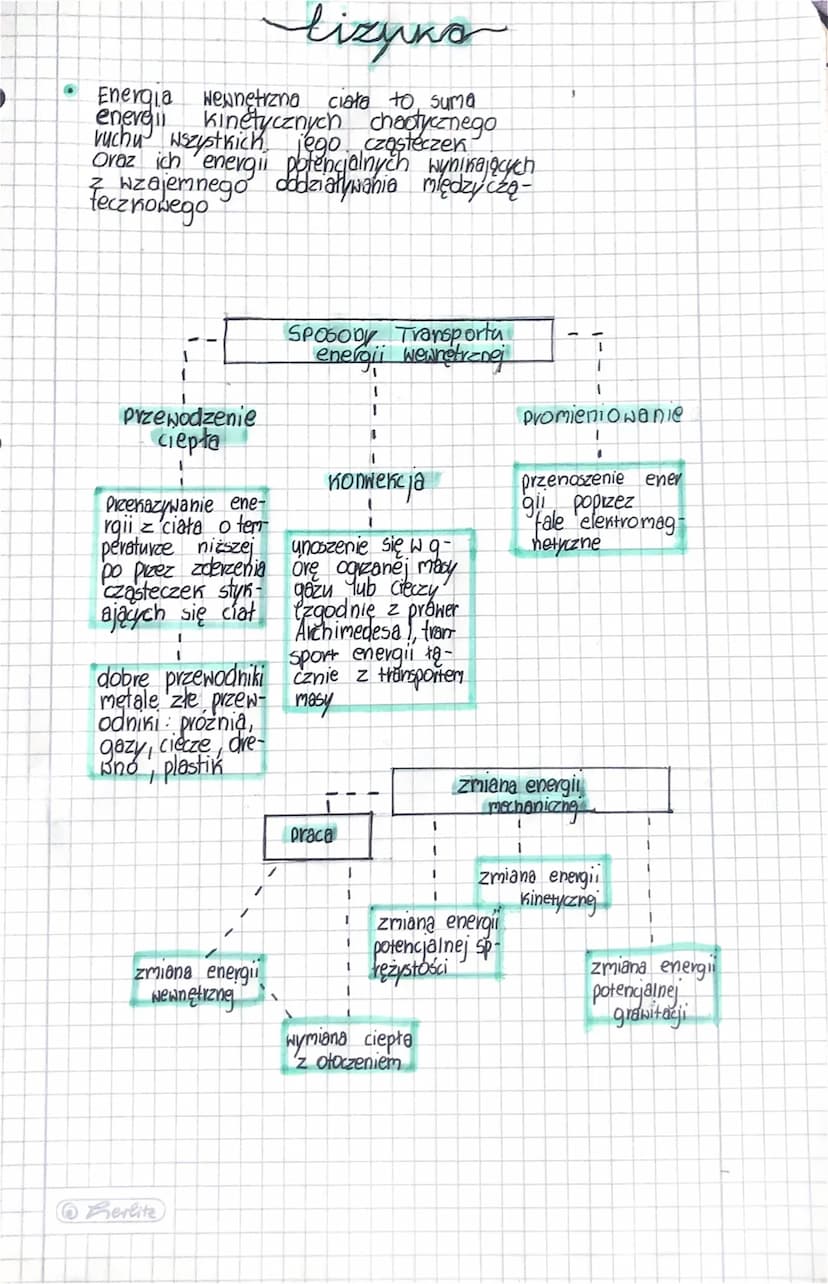 fizyka
Energia wewnętrzna ciała to suma
energii kinetycznych chaotycznego
ruchu wszystkich jego cząsteczek
oraz ich energii potencjalnych wynikających
z wzajemnego oddziaływania międzyczą-
teczkowego
SPOSOBY Transportu
energii wewnętrznej
przewodzenie
ciepła
przekazywanie ene-
rgii z ciała o tem-
peraturze niższej
po przez zderzenia
cząsteczek styk-
ających się ciał
dobre przewodniki
metale, złe przew-
odniki: próżnia,
gazy, ciecze, dre-
wno, plastik
konwekcja
unoszenie się w g-
órę ogrzanej masy
gazu lub cieczy
(zgodnie z prawer
Archimedesa), tran-
sport energii łą-
cznie z transportem
masy
promieniowanie
przenoszenie ener
gii poprzez
fale elektromag-
netyczne
zmiana energii
mechanicznej
praca
zmiana energii
kinetycznej
zmiana energii
potencjalnej sp-
rężystości
zmiana energii
wewnętrznej
zmiana energii
potencjalnej
grawitacji
wymiana ciepła
z otoczeniem
Herlitz